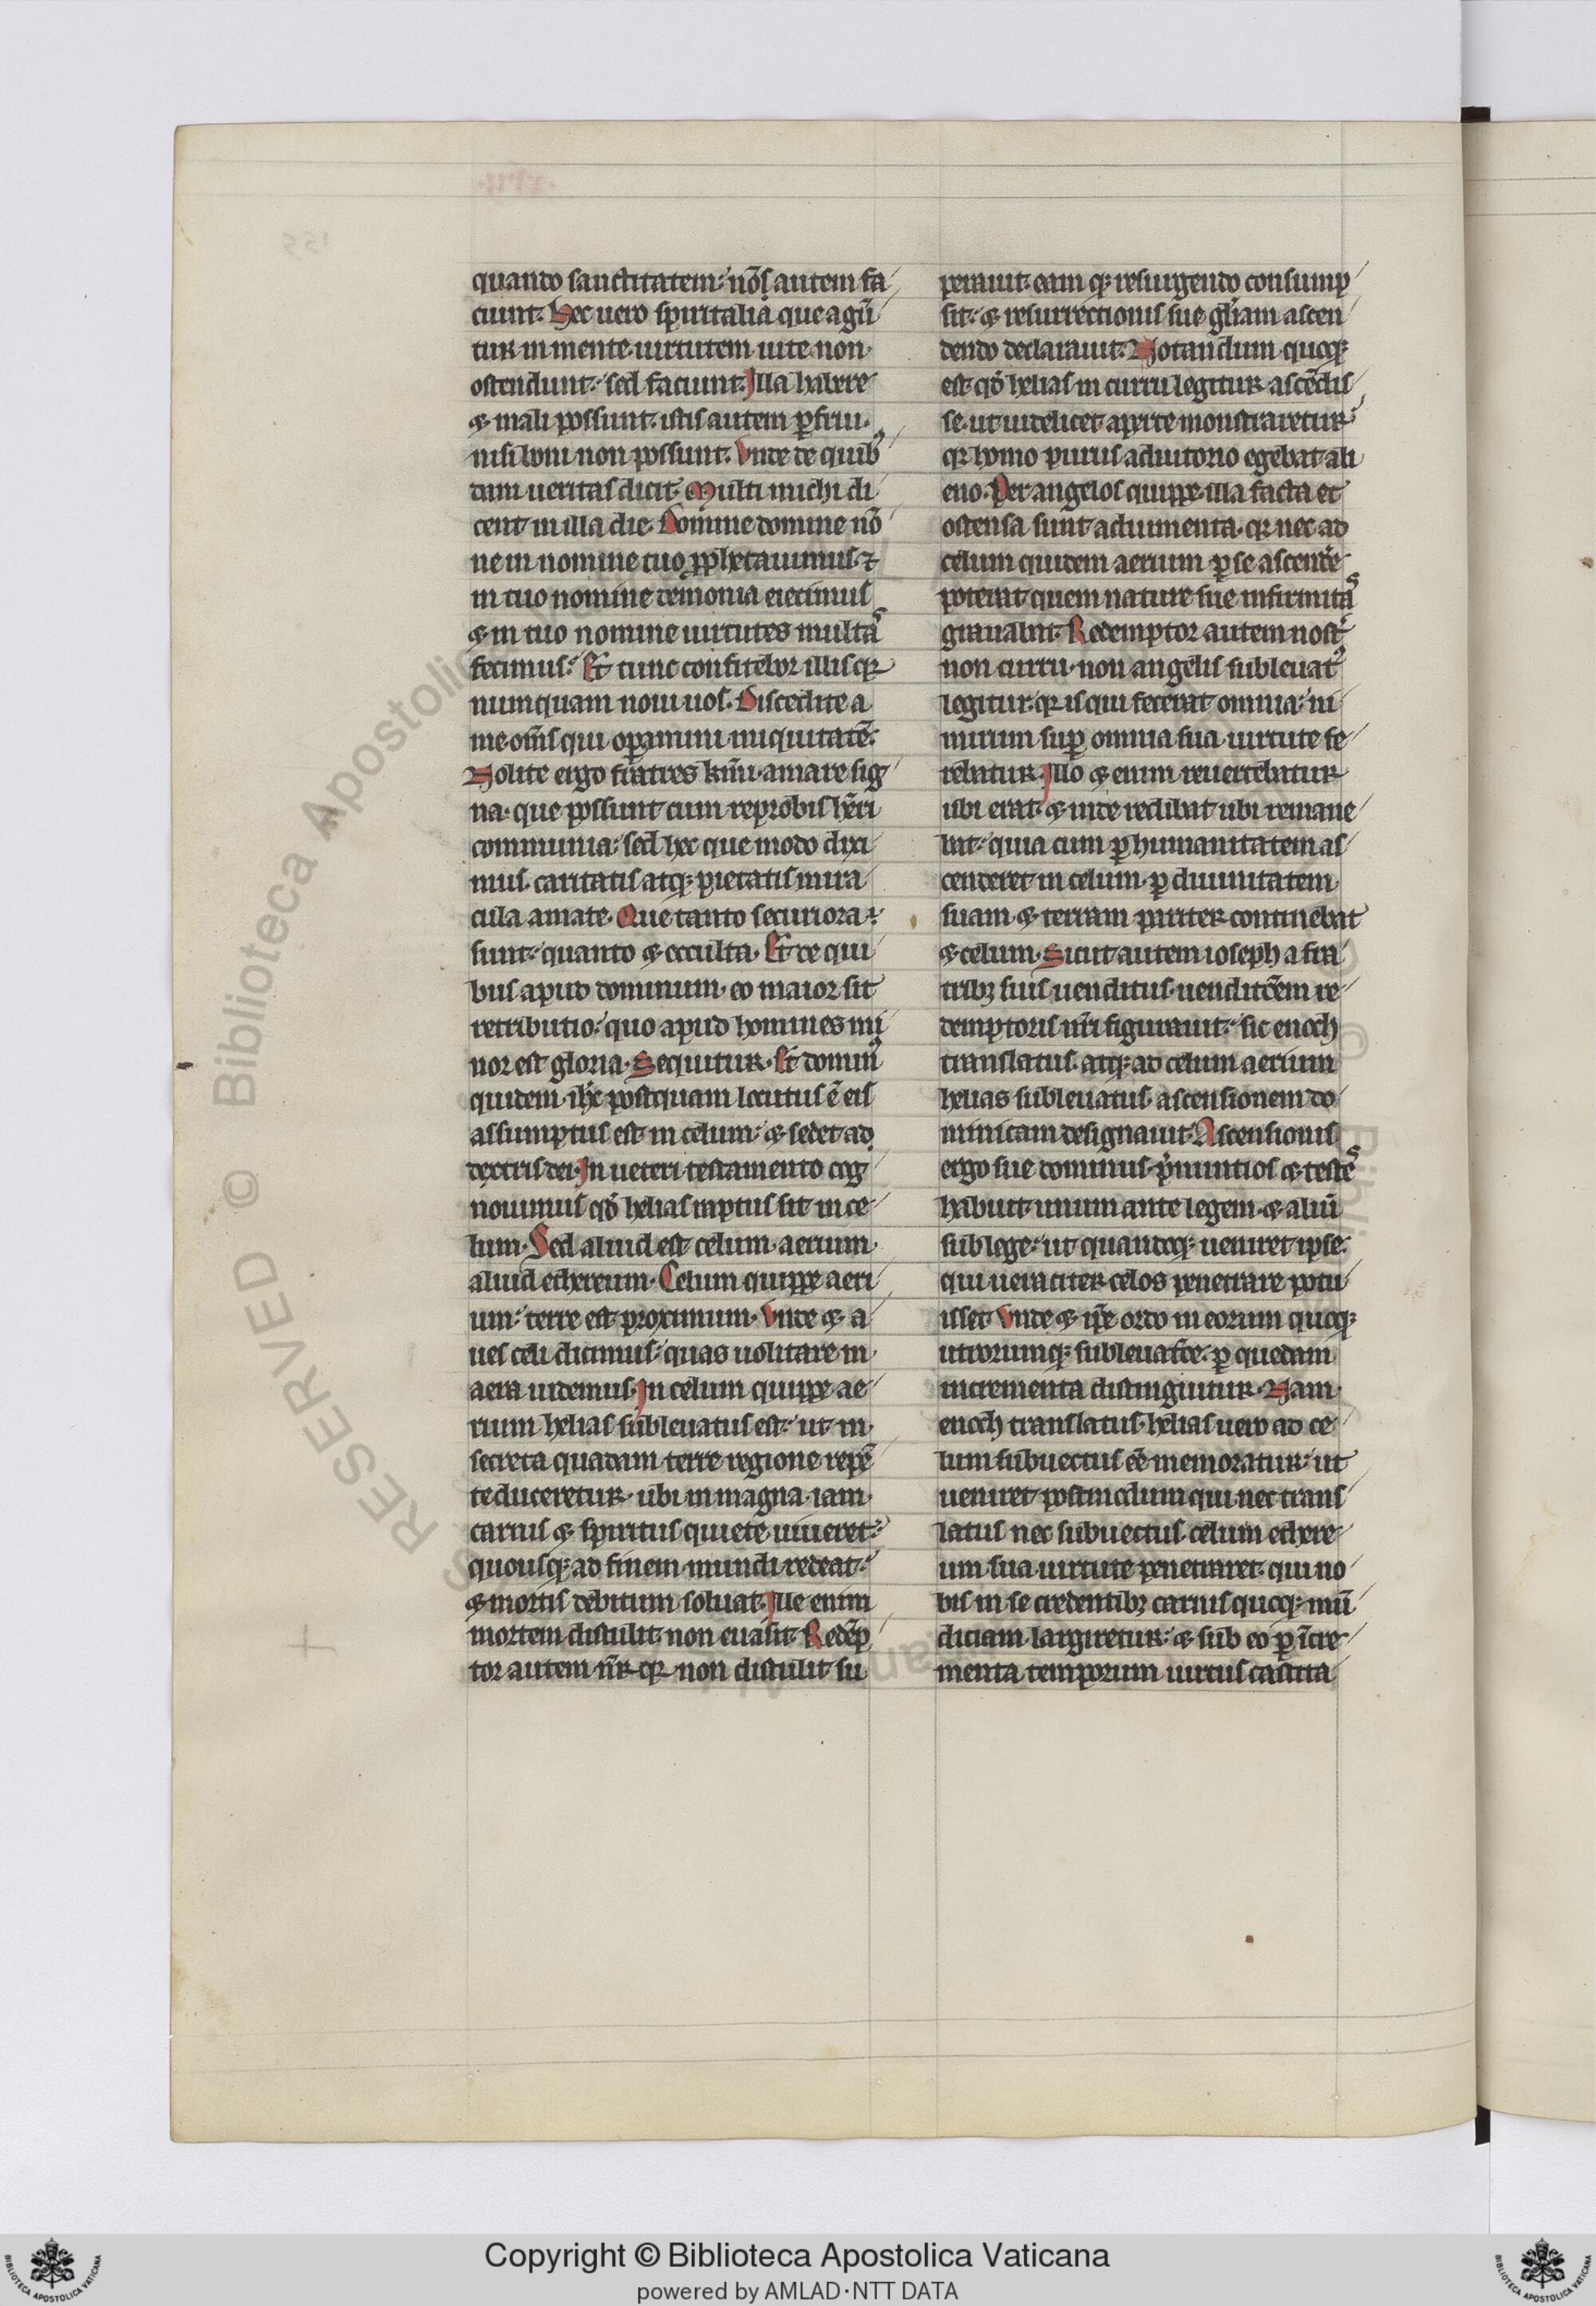 quando sanctitatem: nō autem fa
ciunt. Hec uero spiritalia que agū
tur in mente uirtutem uite non
ostendunt: sed faciunt. Illa habere
& mali possunt. istis autem ꝑfrui
nisi boni non possunt. Vnde de quibꝰ
dam ueritas dicit. Multi michi di
cent in illa die. Domine domine nō
ne in nomine tuo ꝓphetauimus ⁊
in tuo nomine demonia eiecimus
& in tuo nomine uirtutes multas
fecimus: Et tunc confitebor illis qꝛ
numquam noui uos. Discedite a
me om̄s qui oꝑamini iniquitatē:
Nolite ergo fratres km̄i amare sig
na. que possunt cum reprobis hr̄i
communia: sed hec que modo dixi
mus. caritatis atqꝫ pietatis mira
cula amate. Que tanto securiora
sunt: quanto & occulta. Et de qui
bus apud dominum. eo maior sit
retributio: quo apud homines mi
nor est gloria. Sequitur. Et dominꝰ
quidem ih̄c postquam locutus ē eis
assumptus est in celum: & sedet ad
dextris dei. In ueteri testamento cog
nouimus qđ helias raptus sit in ce
lum. Sed aliud est celum aerium
aliud ethereum. Celum quippe aeri
um: terre est proximum. Vnde & a
ues celi dicimus: quas uolitare in
aera uidemus. In celum quippe ae
rium helias subleuatus est: ut in
secreta quadam terre regione repē
te duceretur. ubi in magna iam
carnis & spiritus quiete uiueret:
quousqꝫ ad finem mundi redeat:
& mortis debitum soluat. Ille enim
mortem distulit non euasit. Redēp
tor autem nr̄ qꝛ non distulit su
perauit. eam qꝫ resurgendo consump
sit: & resurrectionis sue gl̄iam ascen
dendo declarauit. Notandum quoqꝫ
est qđ helias in curru legitur ascēdis
se. ut uidelicet aperte monstraretur
qꝛ homo purus adiutorio egebat ali
eno. Per angelos quippe illa facta et
ostensa sunt adiumenta. qꝛ nec ad
celum quidem aerium ꝑ se ascendere
poterat quem nature sue infirmitas
grauabat. Redemptor autem noster
non curru. non angelis subleuatꝰ
legitur. qꝛ is qui fecerat omnia: ni
mirum suꝑ omnia sua uirtute fe
rebatur. Illo & enim reuertebatur
ubi erat. & inde redibat ubi remane
bat: quia cum ꝑ humanitatem as
cenderet in celum. ꝑ diuinitatem
suam & terram pariter continebat
& celum. Sicut autem ioseph a fra
tribꝫ suis uenditus. uenditōem re
demptoris nr̄i figurauit: sic enoch
translatus. atqꝫ ad celum aerium
helias subleuatus. ascensionem do
minicam designauit. Ascensionis
ergo sue dominus p̄nuntios & testes
habuit unum ante legem. & aliū
sub lege: ut quandoqꝫ ueniret ipse.
qui ueraciter celos penetrare potu
isset. Vnde & ip̄e ordo in eorum quoqꝫ
utrorumqꝫ subleuatōe. ꝑ quedam
incrementa distinguitur. Nam
enoch translatus. helias uero ad ce
lum subuectus eē memoratur: ut
ueniret postmodum qui nec trans
latus nec subuectus. celum ethere
um sua uirtute penetraret. qui no
bis in se credentibꝫ carnis quoqꝫ mū
diciam largiretur: & sub eo ꝑ īcre
menta temporum uirtus castita